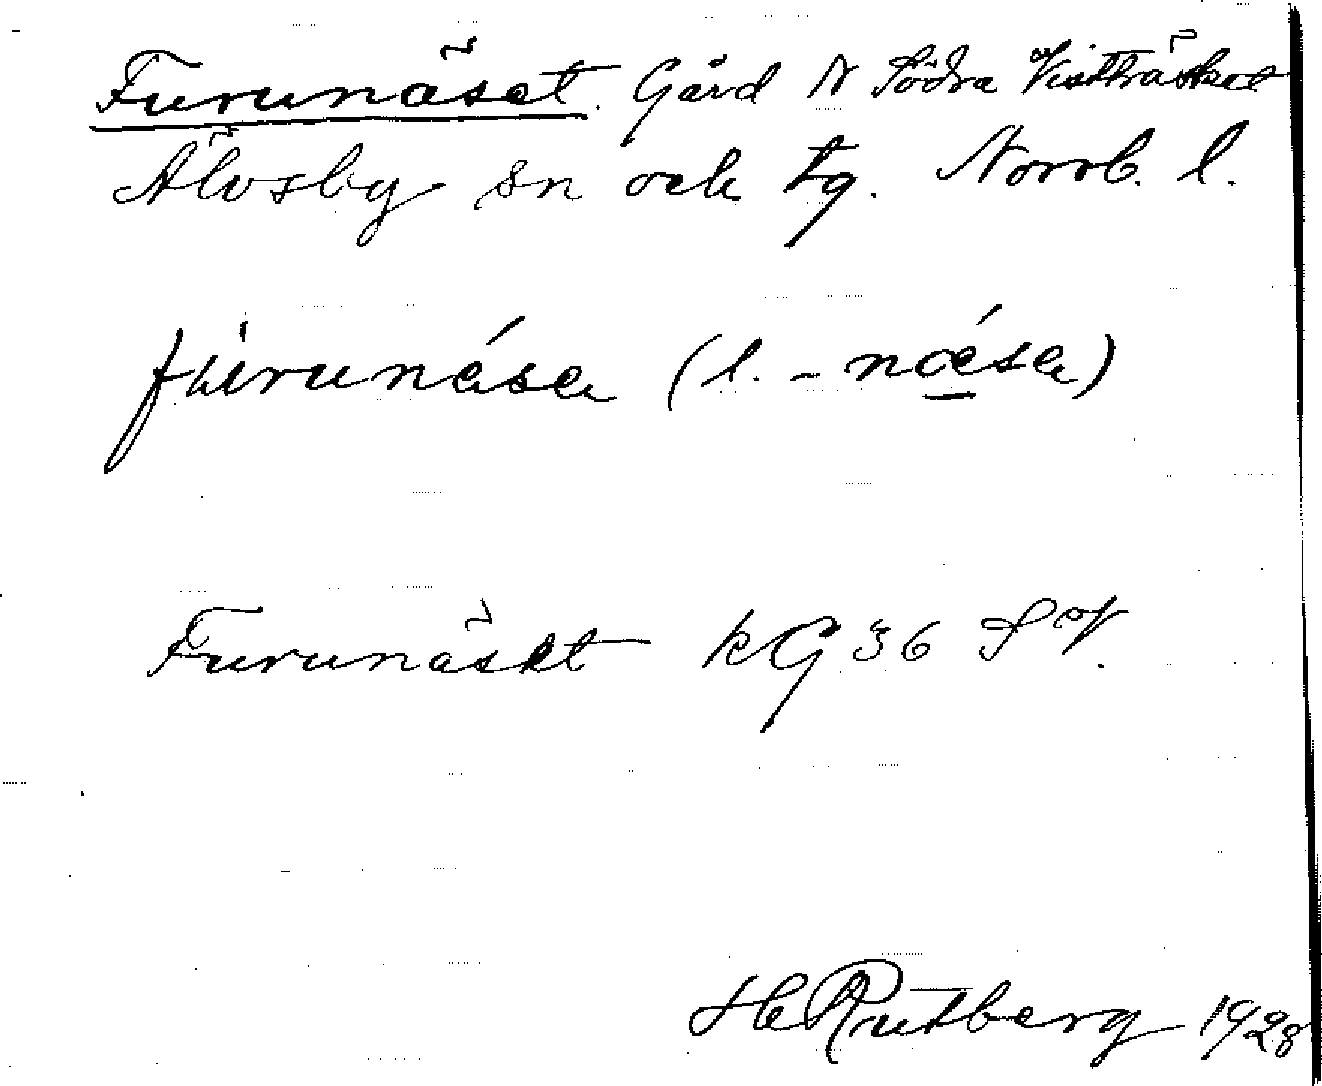 Furunäset. Gård N Södra Vistträsket
Älvsby sn och tg. Norrb. l.
fu̍runásæ (l. -nǿsæ)
Furunäset kG 36 SV.
H Rutberg 1928